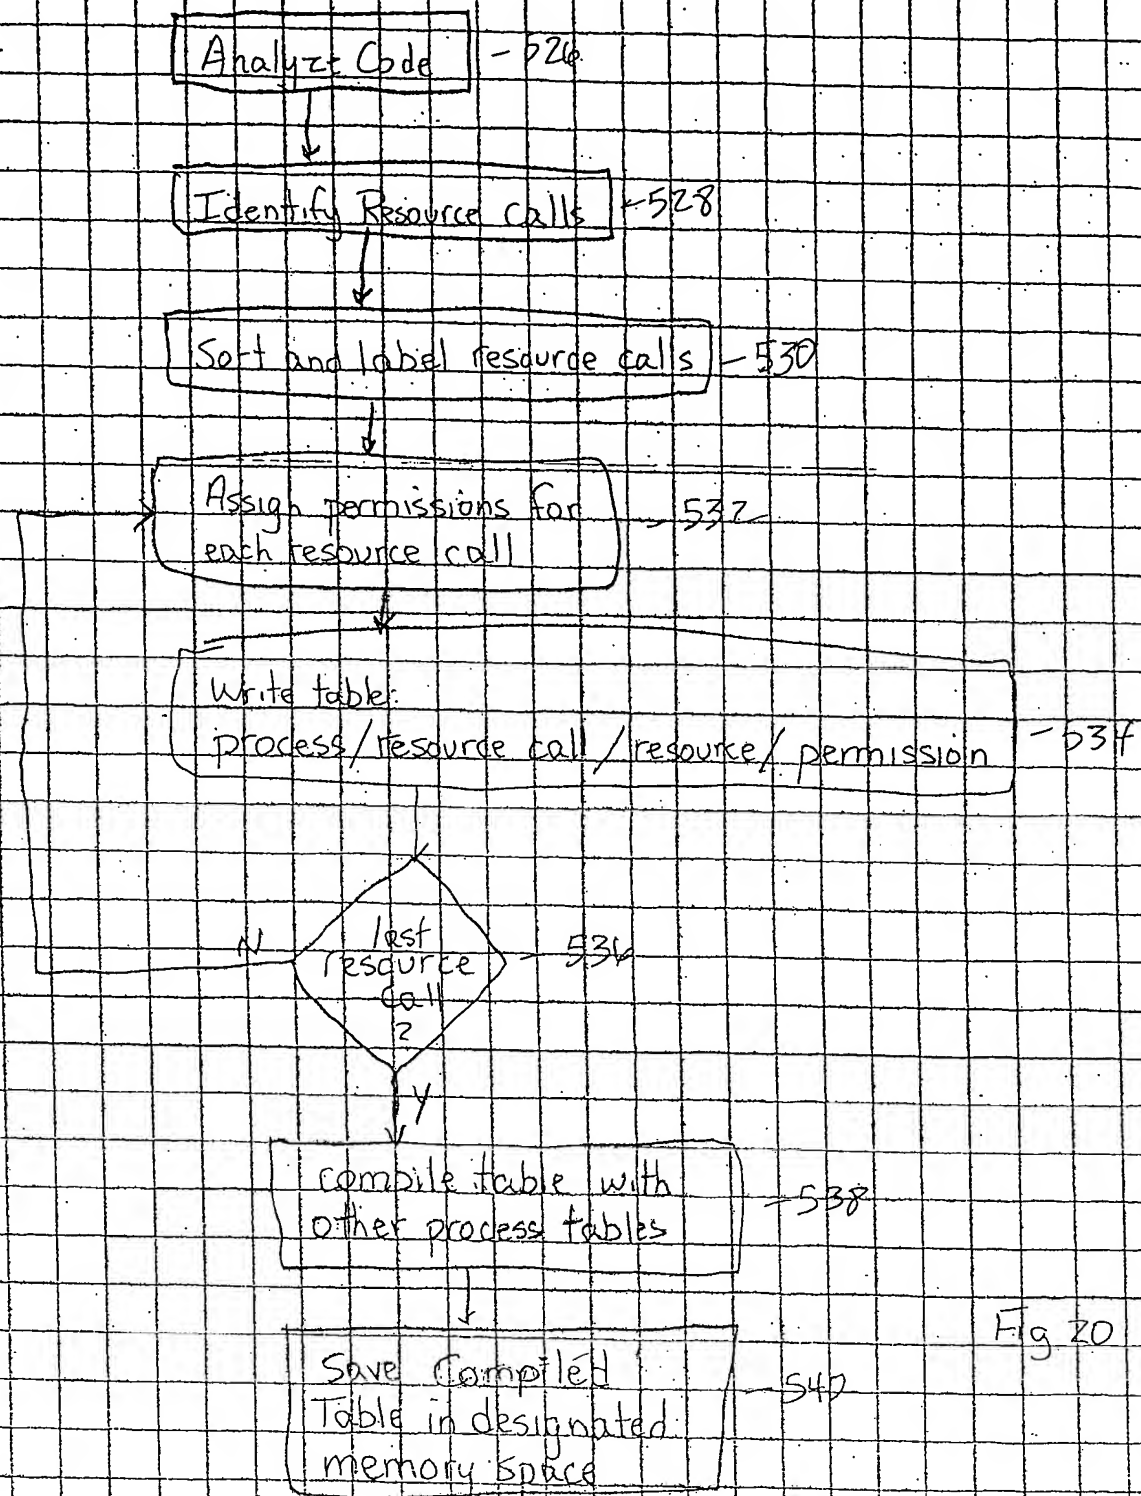 Analyze Code - 526
Identify Resource calls - 528
Sort and label resource calls - 530
Assign permissions for
each resource call
- 532
Write table:
process/resource call/resource/permission - 534
last
resource
call
?
- 536
N
Y
compile table with
other process tables
- 538
Fig 20
Save Compiled
Table in designated
memory space
- 540